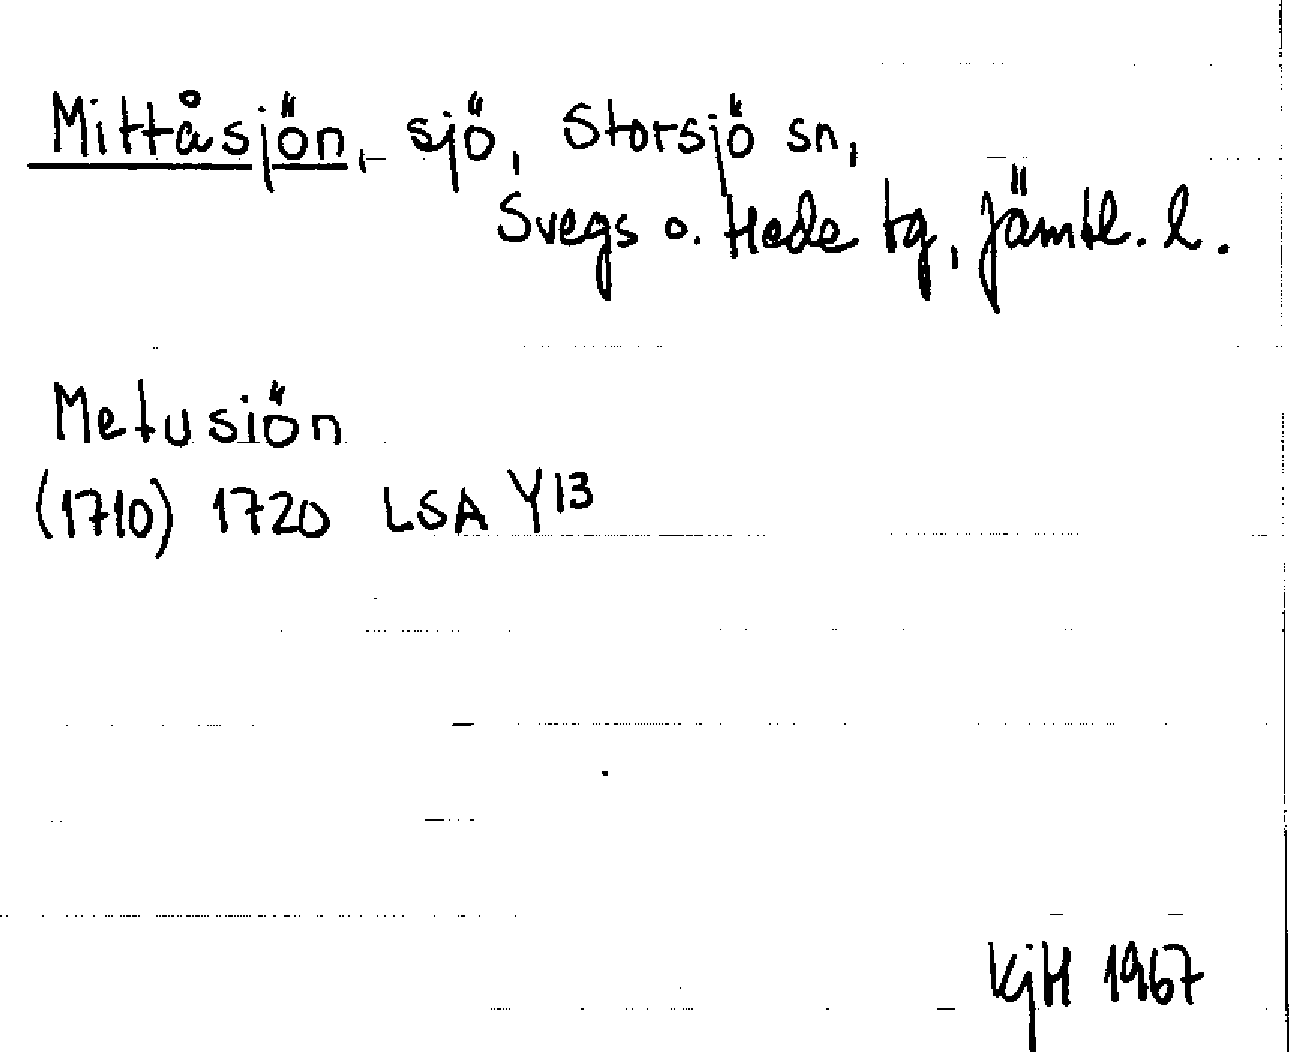 Mittåsjön, sjö, Storsjö sn,
Svegs o. Hede tg, Jämtl. l.
Metusiön
(1710) 1720 LSA Y13
KjH 1967